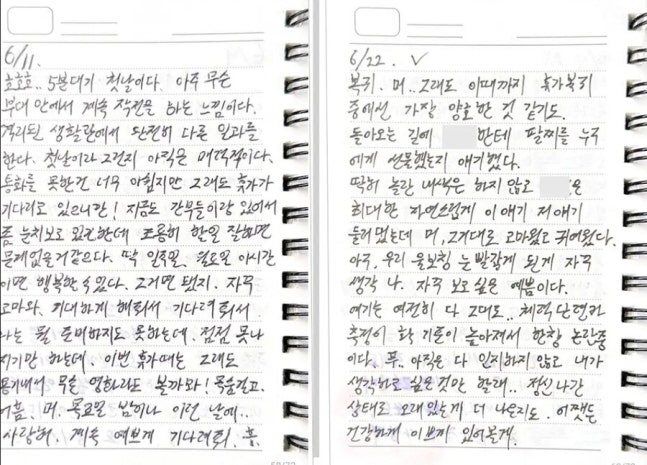 6/11.
호호호.. 5분대기 첫날이다. 아주 무슨
부대 안에서 계속 작전을 하는 느낌이다.
격리된 생활관에서 완전히 다른 일과를
한다. 첫날이라 그런지 아직은 매력적이다.
통화를 못한건 너무 아쉽지만 그래도 휴가가
기다리고 있으니깐! 지금도 간부들이랑 있어서
좀 눈치보고 있긴한데 조용히 할일 잘하면
문제없을거같은다. 딱 일주일, 월요일 아시간
이면 행복할 수 있다. 그거면 됐지. 자꾸
고마와. 기대하게 해줘서 기다려줘서.
나는 뭘 준비하지도 못하는데. 점점 못나
지기만 하는데. 이번 휴가때는 그래도
용기내서 무슨 영화라도 볼까와! 목숨걸고.
어흠! 머. 목요일 밤이나 이런 날에..
사랑해. 계속 예쁘게 기다려줘. 흥.
6/22. ✓
복귀. 머.. 그래도 이때까지 휴가복귀
중에선 가장 양호한 것 같기도.
돌아오는 길에 한테 팔찌를 누구
에게 선물했는지 얘기했다.
딱히 놀란 내색은 하지 않고 은
최대한 자연스럽게 이 얘기 저 얘기
들려줬는데 머, 그거대로 고마웠고 귀여웠다.
아. 우리 울보칭 눈 빨갛게 된게 자꾸
생각 나. 자꾸 보고 싶은 예쁨이다.
여기는 여전히 다 그대로.. 체력단련키
측정이 확 기준이 높아져서 한창 논란중
이다. 푹. 아직은 다 인지하지 않고 내가
생각하고 싶은것만 할래.. 정신나간
상태로 오래있는게 더 나은지도. 어쨋든
건강하게 이쁘게 있어볼게.